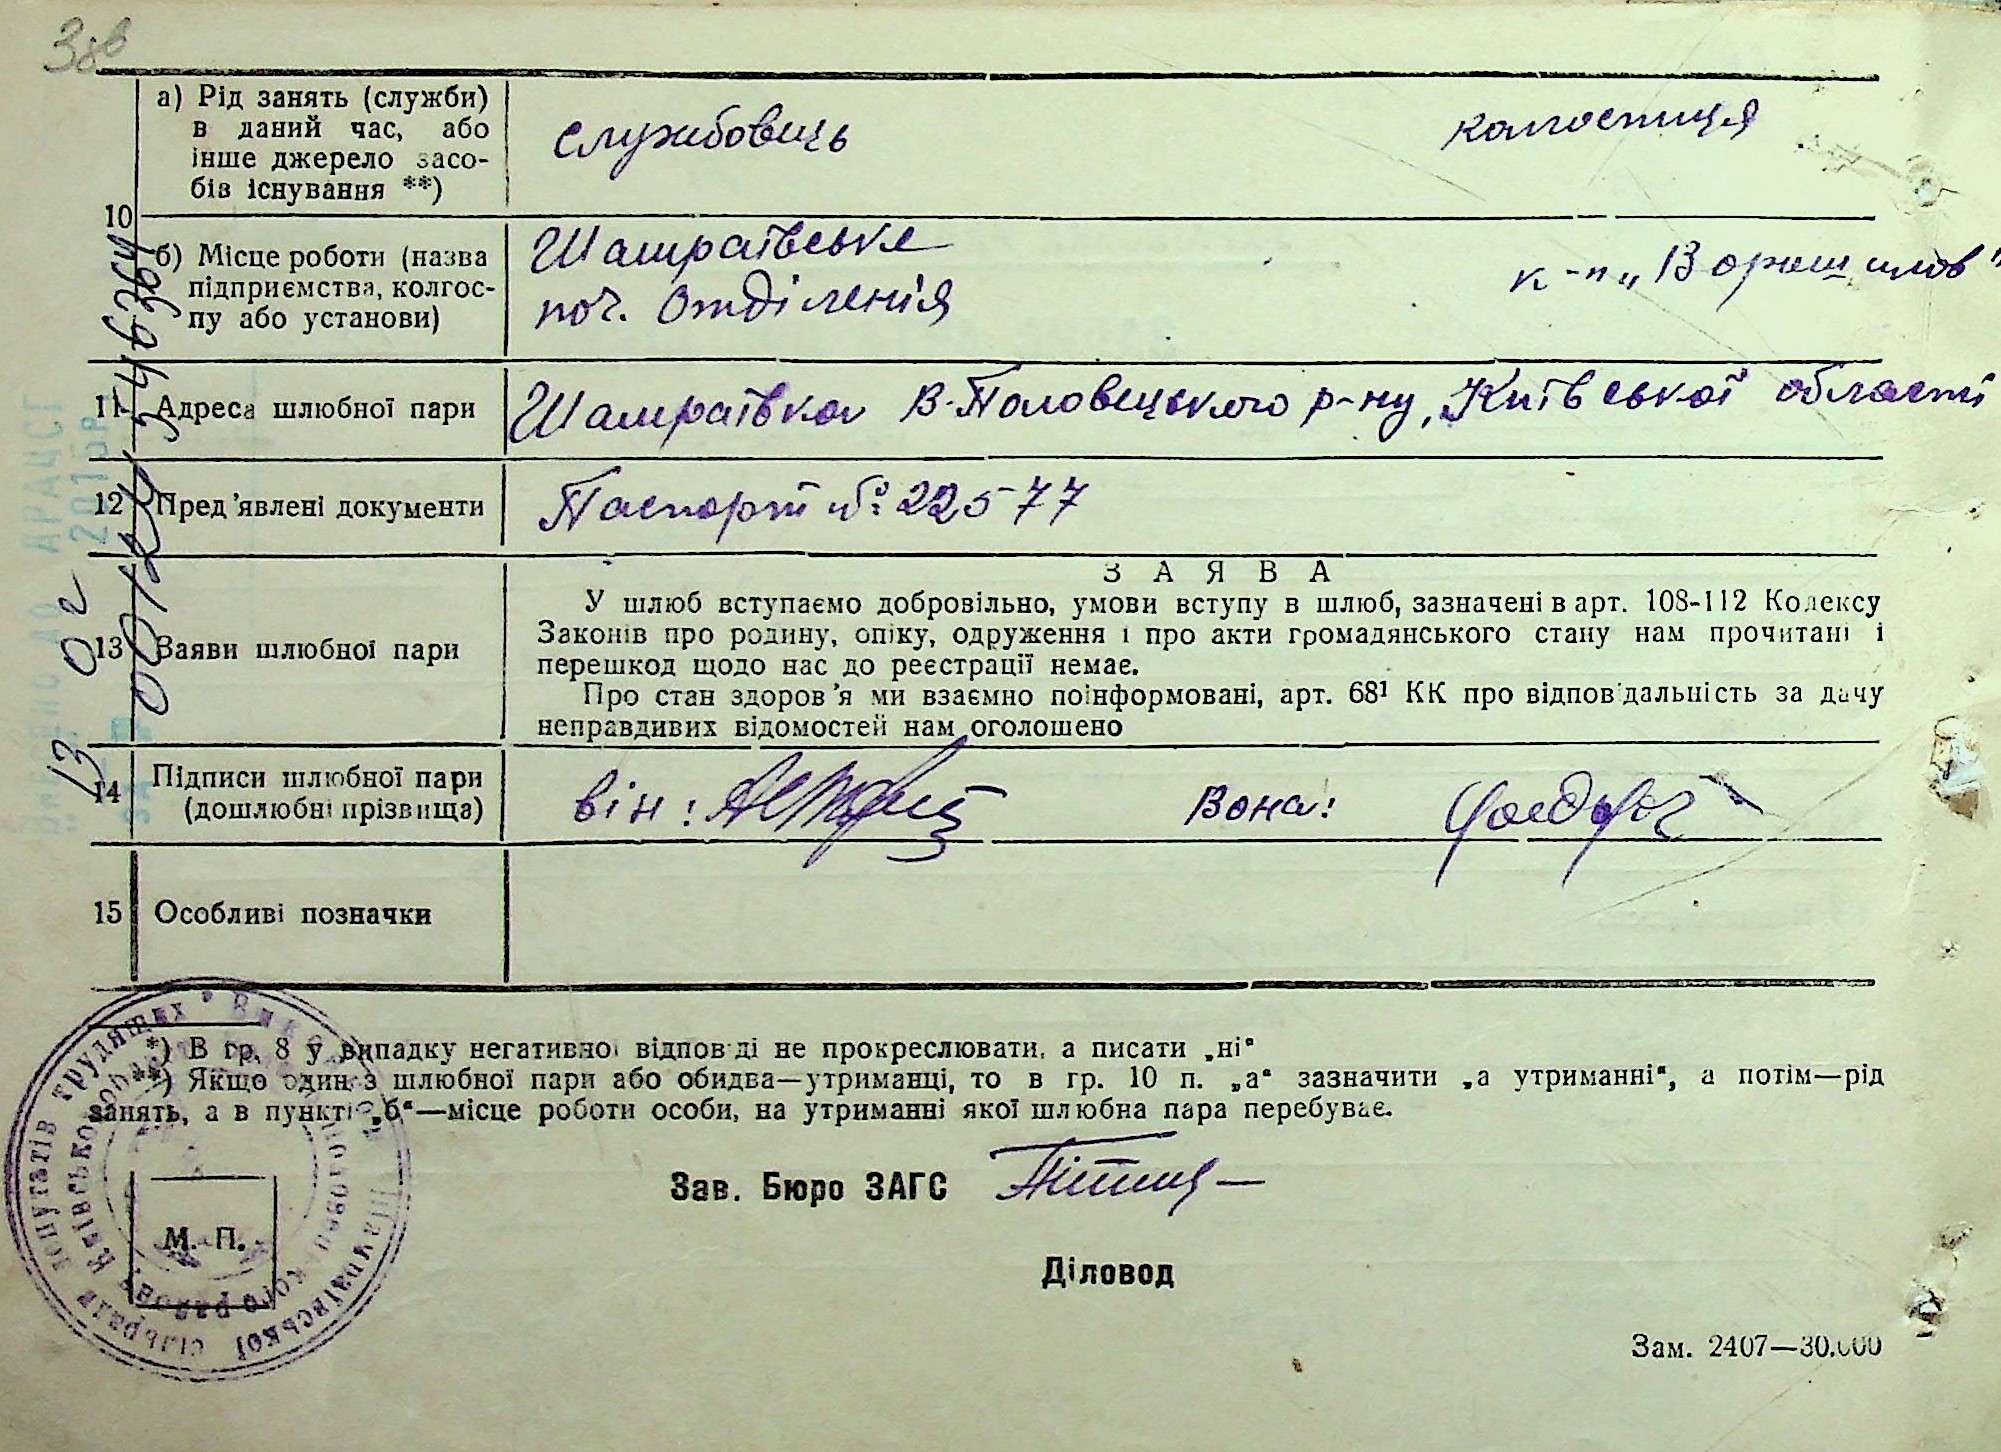 Ззв
а) Рід занять (служби)
в даний час, або
інше джерело засо-
бів існування **)
службовець
колгоспниця
10
б) Місце роботи (назва
підприємства, колгос-
пу або установи)
Шамраївське
поч. отділенія
к-п „Ворошилов"
11 Адреса шлюбної пари
Шамраївка В-Половецького р-ну, Київської області
12 Пред'явлені документи
Паспорт № 22577
13 Заяви шлюбної пари
ЗАЯВА
У шлюб вступаємо добровільно, умови вступу в шлюб, зазначені в арт. 108-112 Кодексу
Законів про родину, опіку, одруження і про акти громадянського стану нам прочитані і
перешкод щодо нас до реєстрації немає.
Про стан здоров'я ми взаємно поінформовані, арт. 68¹ КК про відповідальність за дачу
неправдивих відомостей нам оголошено
14 Підписи шлюбної пари
(дошлюбні прізвища)
він:
Вона:
15 Особливі позначки
*) В гр. 8 у випадку негативної відповіді не прокреслювати, а писати „ні"
**) Якщо один з шлюбної пари або обидва—утриманці, то в гр. 10 п. „а" зазначити „а утриманні", а потім—рід
занять, а в пункті „б"—місце роботи особи, на утриманні якої шлюбна пара перебуває.
Зав. Бюро ЗАГС
Діловод
М. П.
Шамраївської сільради депутатів трудящих
Київської
Зам. 2407—30.000